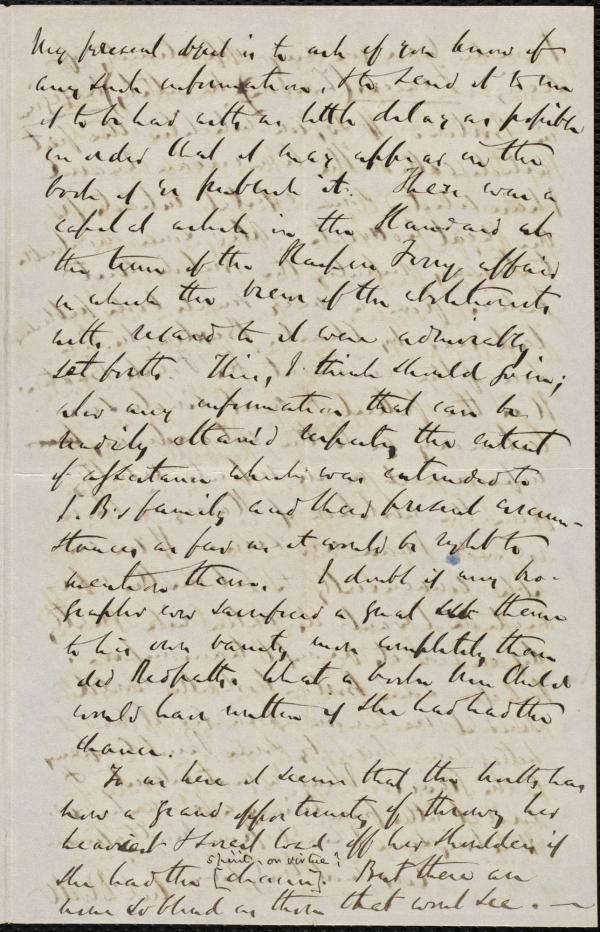 My present object is to ask if you know of
any such information, & to send it to me
if to be had with as little delay as possible
in order that it may appear in the
book if we publish it. There was a
capital article in the Standard at
the time of the Harper's Ferry affair
in which the views of the abolitionists
with regard to it were admirably
set forth. This, I think should go in;
also any information that can be
readily attained respecting the extent
of assistance which was extended to
J. B.'s family and their present circum-
stances, as far as it would be right to
mention them. I doubt if any bio-
grapher ever sacrificed a great theme
to his own vanity more completely than
did Redpath. What a book Mrs Child
would have written if she had had the
chance.
To us here it seems that the North has
now a grand opportunity of throwing her
heaviest & sorest load off her shoulders if
spirit, or virtue?
she had the [ ]. But there are
none so blind as those that won't see. —